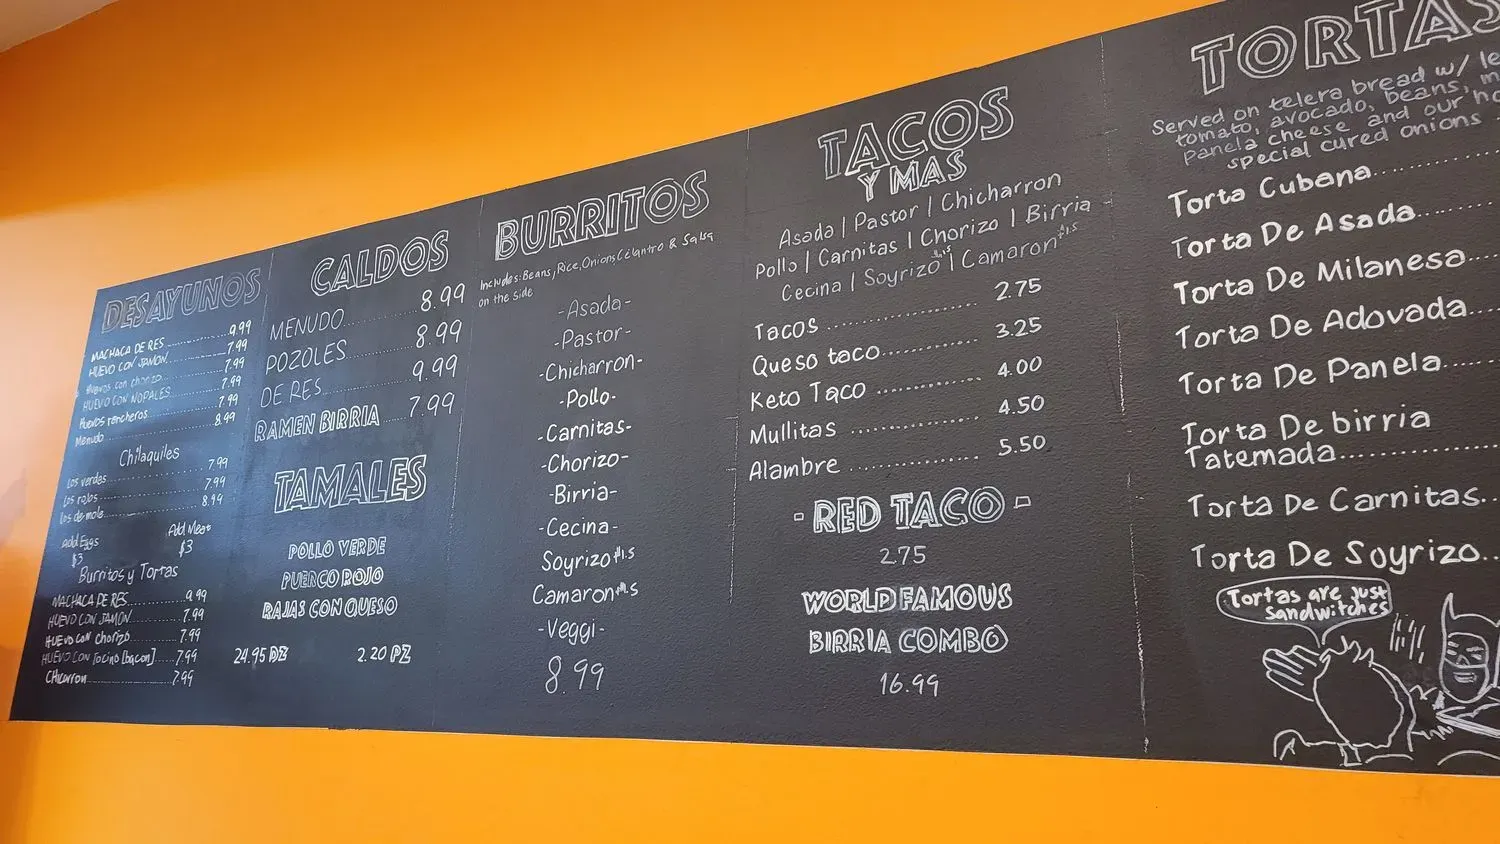 DESAYUNOS
MACHACA DE RES 9.99
HUEVO CON JAMON 7.99
Huevos con chorizo 7.99
HUEVO CON NOPALES 7.99
Huevos rancheros 7.99
Menudo 8.99
Chilaquiles
Los verdes 7.99
Los rojos 7.99
Los de mole 8.99
Add Eggs
$3
Add Meat
$3
Burritos y Tortas
MACHACA DE RES 9.99
HUEVO CON JAMON 7.99
HUEVO CON chorizo 7.99
HUEVO CON Tocino [bacon] 7.99
Chicarron 7.99
CALDOS
MENUDO 8.99
POZOLES 8.99
DE RES 9.99
RAMEN BIRRIA 7.99
TAMALES
POLLO VERDE
PUERCO ROJO
RAJAS CON QUESO
24.95 DZ 2.20 PZ
BURRITOS
Includes: Beans, Rice, Onions Cilantro & Salsa
on the side
-Asada-
-Pastor-
-Chicharron-
-Pollo-
-Carnitas-
-Chorizo-
-Birria-
-Cecina-
Soyrizo +1.5
Camaron +1.5
-Veggi-
8.99
TACOS
Y MAS
Asada | Pastor | Chicharron
Pollo | Carnitas | Chorizo | Birria
Cecina | Soyrizo | Camaron
Tacos 2.75
Queso taco 3.25
Keto Taco 4.00
Mullitas 4.50
Alambre 5.50
- RED TACO -
2.75
WORLD FAMOUS
BIRRIA COMBO
16.99
TORTAS
Served on telera bread w/
tomato, avocado, beans,
panela cheese and our
special cured onions
Torta Cubana
Torta De Asada
Torta De Milanesa
Torta De Adovada
Torta De Panela
Torta De birria
Tatemada
Torta De Carnitas
Torta De Soyrizo
Tortas are just
sandwitches